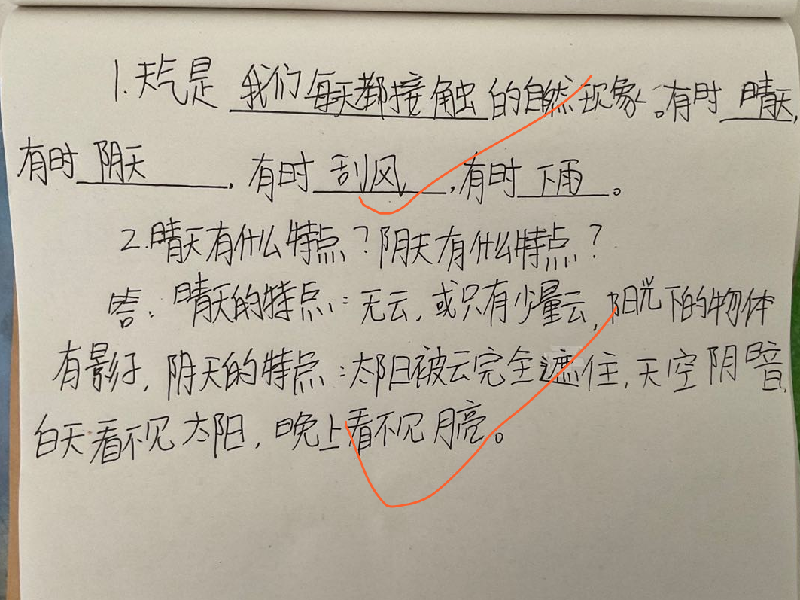 1.天气是 我们每天都接触的自然现象。有时 晴天,
有时 阴天 ,有时 刮风 ,有时 下雨 。
2.晴天有什么特点?阴天有什么特点?
答:晴天的特点:无云,或只有少量云,阳光下的物体
有影子,阴天的特点:太阳被云完全遮住,天空阴暗,
白天看不见太阳,晚上看不见月亮。